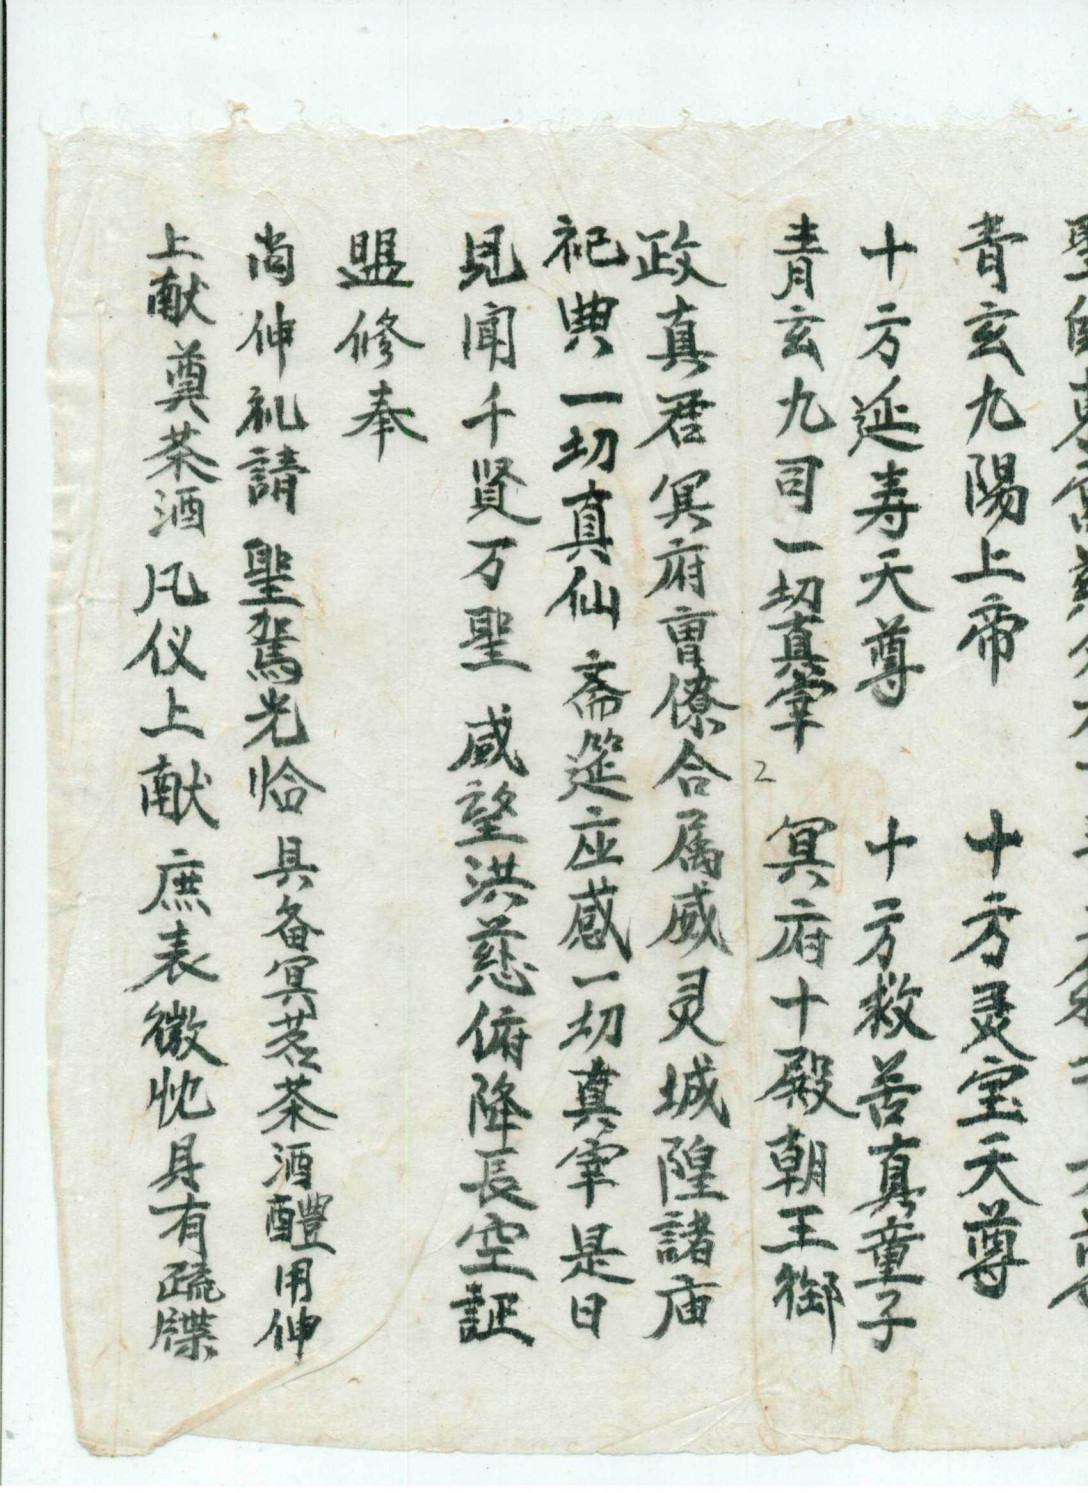 青玄九陽上帝 十方灵宝天尊
十方延寿天尊 十方救苦真童子
青玄九司一切真宰 冥府十殿朝王御
2
政真君冥府曺僚合属威灵城隍諸庙
祀典一切真仙 斋筵座蒧一切真宰是日
見闻千贤万聖 咸望洪慈俯降長空証
盟修奉
尚伸礼請 聖駕光恰 具备冥茗茶酒醴用伸
上献 奠茶酒凡仪上献 庶表微忱具有疏牒